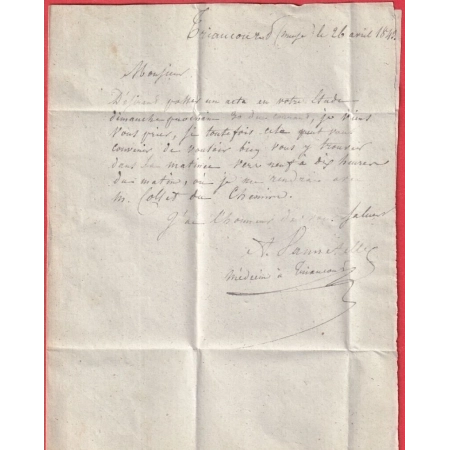 Triaucourt (Meuse) le 26 avril 184
Monsieur
Désirant passer un acte en votre Etude
dimanche prochain 30 du courant, je viens
vous prier, si toutefois cela peut vous
convenir de vouloir bien vous y trouver
dans la matinée vers neuf à dix heures
du matin, où je me rendrai avec
M. Collet du Chemin.
J'ai l'honneur de vous saluer
Médecin à Triaucourt